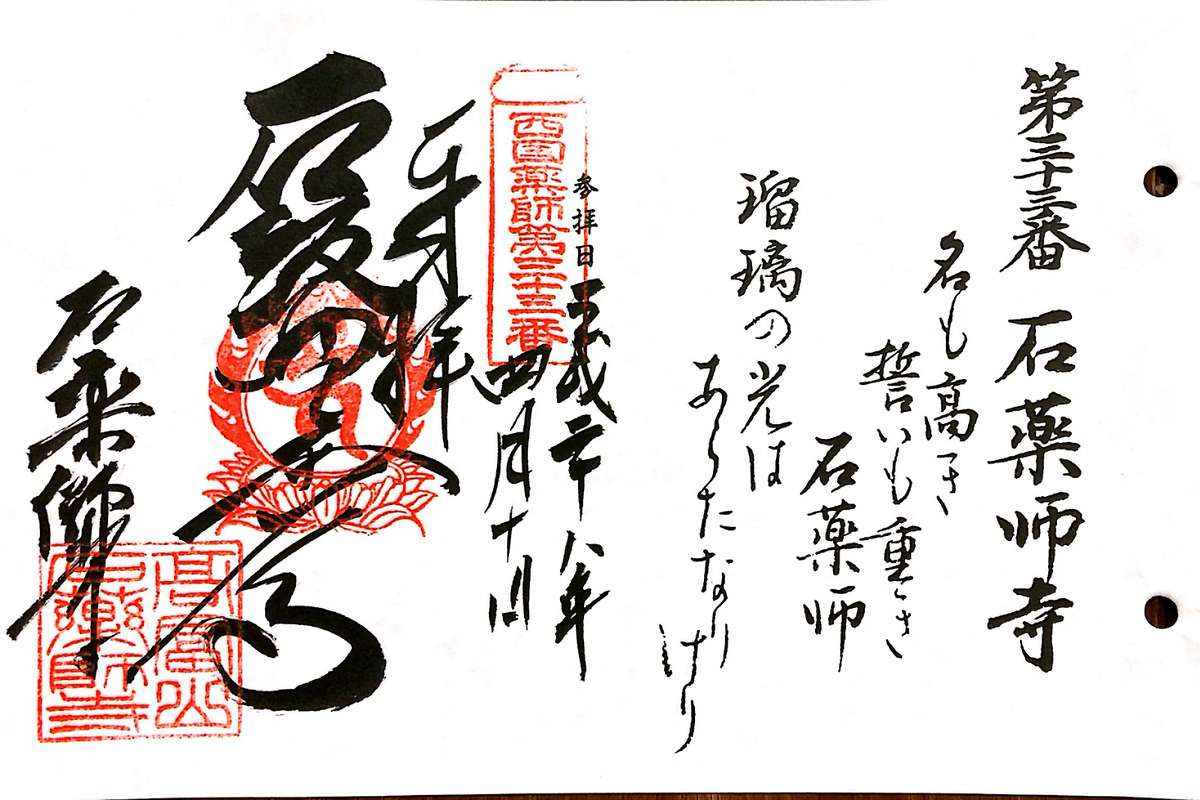 第三十三番 石薬師寺
名も高き
誓いも重き
石薬師
瑠璃の光は
あらたなりけり
参拝日 平成二十八年
四月十日
西国薬師第三十三番
奉拝
石薬師寺
高富山
石薬師寺